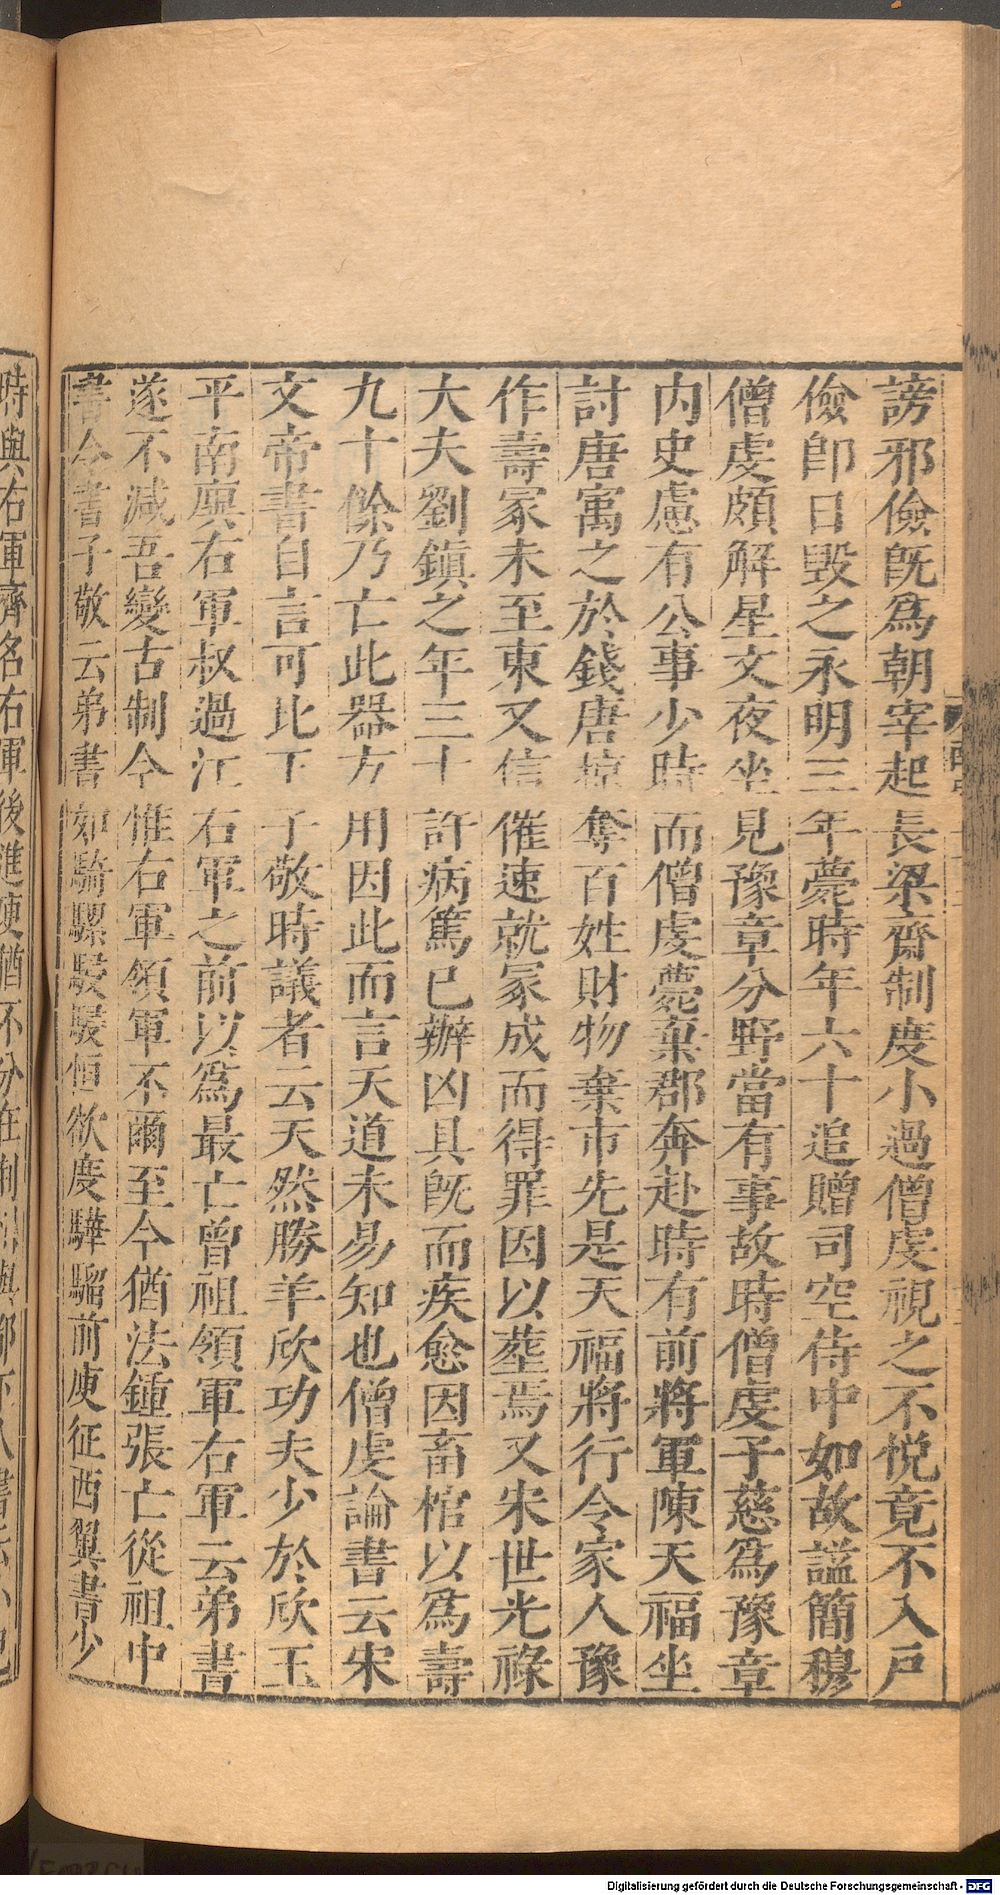 謗邪儉既爲朝宰起長梁齋制度小過僧虔視之不悅竟不入戸
儉卽日毀之永明三年薨時年六十追贈司空侍中如故謚簡穆
僧虔頗解星文夜坐見豫章分野當有事故時僧虔子慈爲豫章
内史慮有公事少時而僧虔薨棄郡奔赴時有前將軍陳天福坐
討唐㝢之於錢唐掠奪百姓財物棄市先是天福將行令家人豫
作壽冢未至東又信催速就冢成而得罪因以塟焉又宋世光祿
大夫劉鎮之年三十許病篤已辦凶具旣而疾愈因畜棺以爲壽
九十餘乃亡此器方用因此而言天道未易知也僧虔論書云宋
文帝書自言可比王子敬時議者云天然勝羊欣功夫少於欣王
平南廙右軍叔過江右軍之前以爲最亡曾祖領軍右軍云弟書
遂不減吾變古制今惟右軍領軍不爾至今猶法鍾張亡從祖中
書令書子敬云弟書如騎騾駸駸恒欲度驊騮前庾征西翼書少
時與右軍齊名右軍後進庾猶不分在荆州與都下人書云小兒
Digitalisierung gefördert durch die Deutsche Forschungsgemeinschaft - DFG